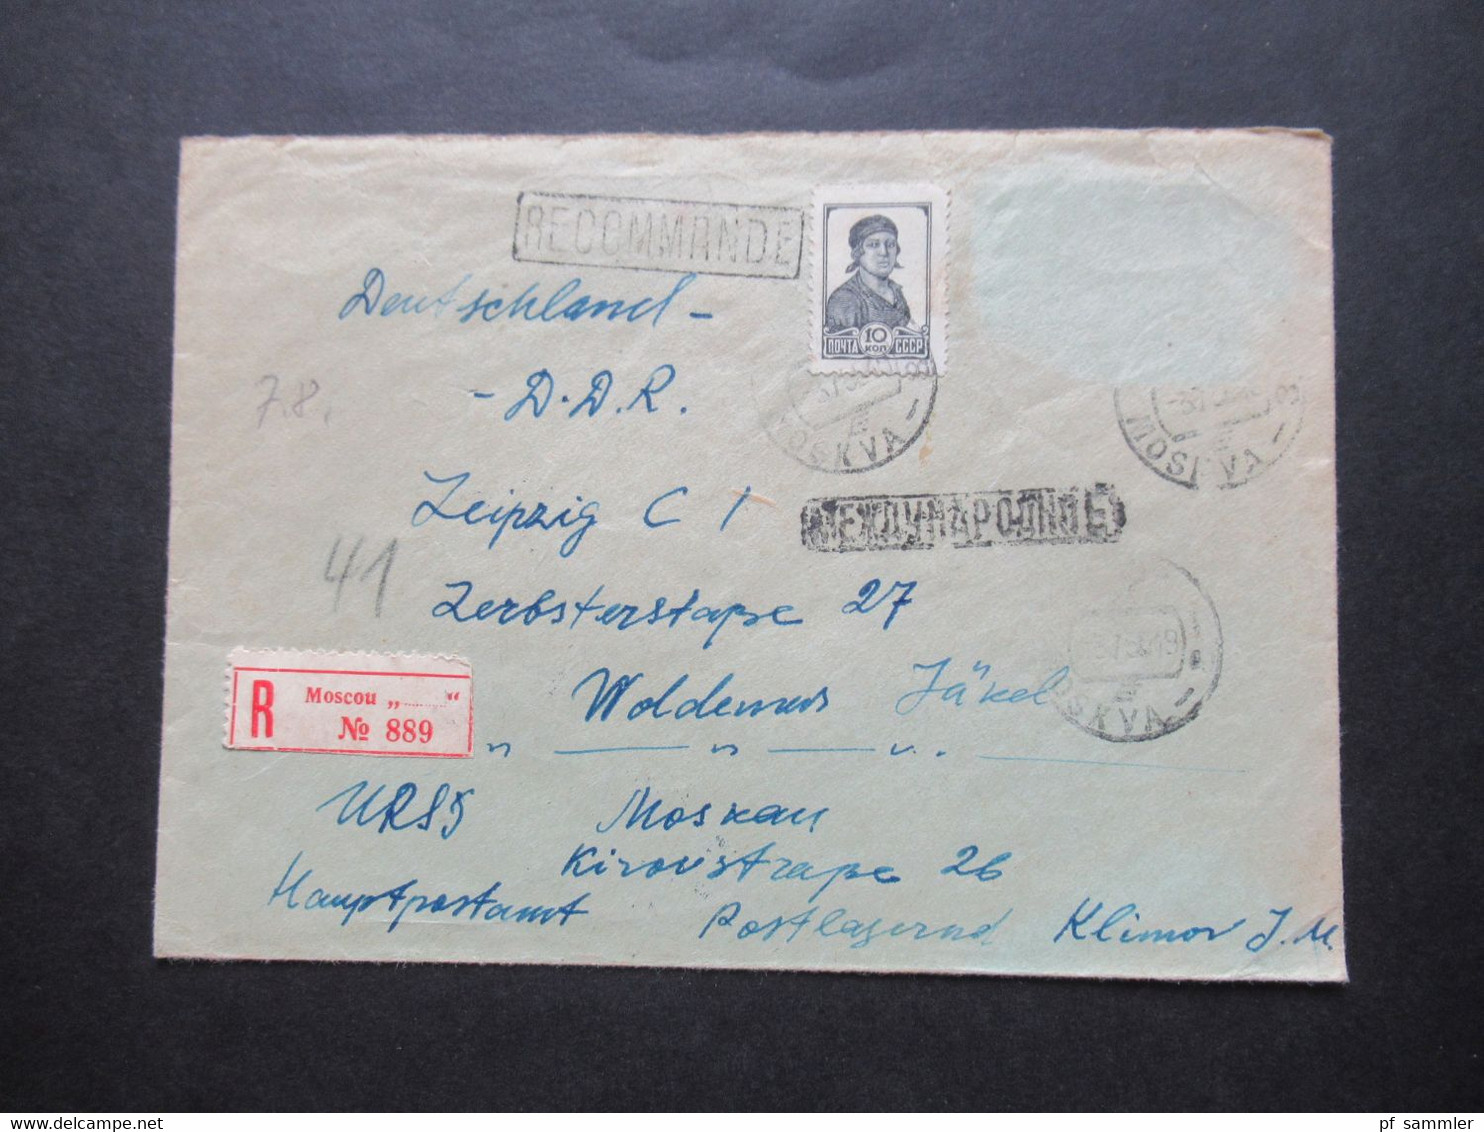 RECOMMANDE
Deutschland -
- D.D.R.
7.8.
10
КОП
ПОЧТА СССР
MOSKVA
MOSKVA
Leipzig C 1
МЕЖДУНАРОДНОЕ
41
Zerbsterstraße 27
Woldemar Jäkel
R
Moscou „ “
№ 889
MOSKVA
URSS Moskau
Kirovstraße 26
Hauptpostamt Postlagernd Klimov J.M.
www.delcampe.net
pf_sammler